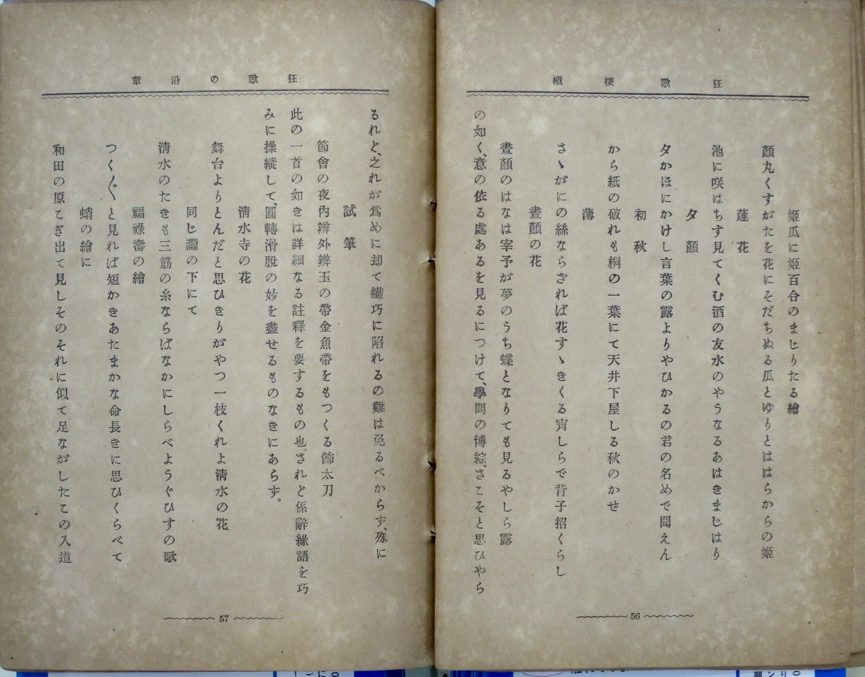 狂歌撰概
姫瓜に姫百合のまじりたる繪
顔丸くすがたを花にそだちぬる瓜とゆりとははらからの姫
蓮花
池に咲はちす見てくむ酒の友水のやうなるあはきまじはり
夕顔
夕かほにかけし言葉の露よりやひかるの君の名めで聞えん
初秋
から紙の破れも桐の一葉にて天井下屋しる秋のかせ
薄
さゝがにの絲ならざれば花すゝきくる宵しらで背子招くらし
晝顔の花
晝顔のはなは宰予が夢のうち蝶となりても見るやしら露
の如く、意の依る處あるを見るにつけて、學問の博綜、さこそと思ひやら
56
狂歌の沿革
るれと、之れが爲めに却て纖巧に陷れるの難は免るべからす、殊に
試筆
節會の夜內辨外辨玉の帶金魚帶をもつくる飾太刀
此の一首の如きは詳細なる註釋を要するもの也、されど係辭緣語を巧
みに操縱して、圓轉滑脫の妙を盡せるものなきにあらす。
淸水寺の花
舞台よりとんだと思ひきりがやつ一枝くれよ淸水の花
同じ瀧の下にて
淸水のたきも三筋の糸ならばなかにしらべようぐひすの歌
福祿壽の繪
つく〴〵と見れば短かきあたまかな命長きに思ひくらべて
蛸の繪に
和田の原こぎ出て見しそのそれに似て足ながしたこの入道
57